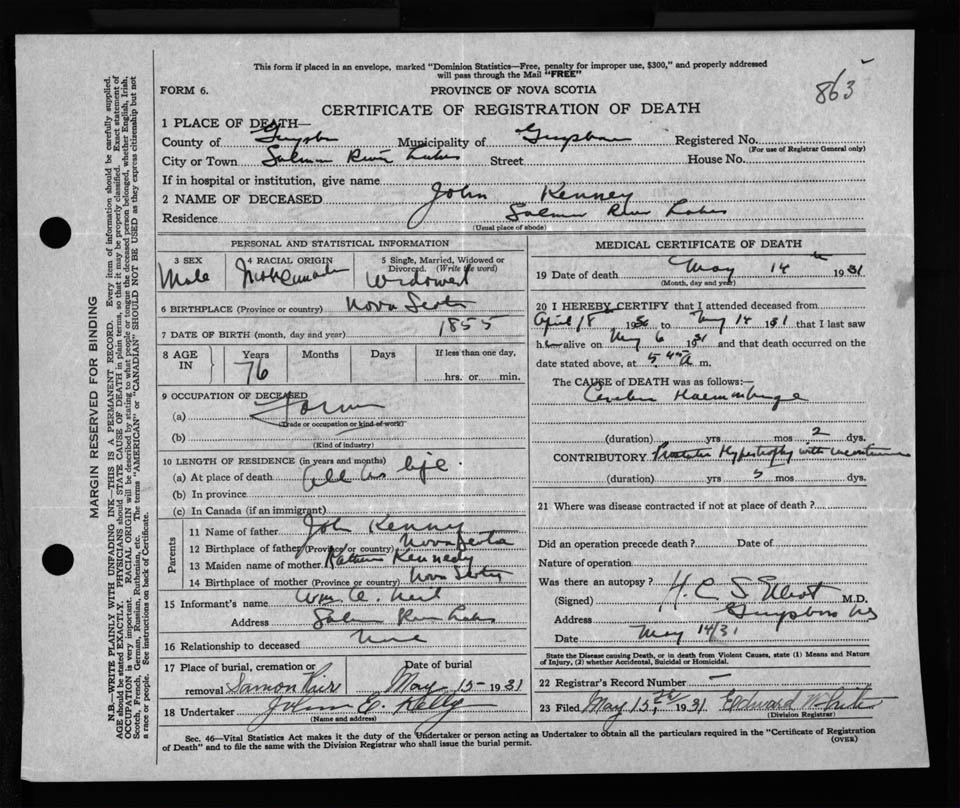 This form if placed in an envelope, marked "Dominion Statistics—Free, penalty for improper use, $300," and properly addressed
will pass through the Mail "FREE"
863
FORM 6. PROVINCE OF NOVA SCOTIA
CERTIFICATE OF REGISTRATION OF DEATH
1 PLACE OF DEATH—
County of Municipality of Registered No.
(For use of Registrar General only)
City or Town Salmon River Lakes Street House No.
If in hospital or institution, give name
2 NAME OF DECEASED John Kenney
Residence Salmon River Lakes
(Usual place of abode)
PERSONAL AND STATISTICAL INFORMATION
3 SEX 4 RACIAL ORIGIN 5 Single, Married, Widowed or Divorced. (Write the word)
Male Widowed
6 BIRTHPLACE (Province or country) Nova Scotia
7 DATE OF BIRTH (month, day and year) 1855
8 AGE IN Years Months Days If less than one day,
76 hrs. or min.
9 OCCUPATION OF DECEASED
(a)
(Trade or occupation or kind of work)
(b)
(Kind of industry)
10 LENGTH OF RESIDENCE (in years and months)
(a) At place of death all his life.
(b) In province
(c) In Canada (if an immigrant)
Parents
11 Name of father John Kenney
12 Birthplace of father (Province or country) Nova Scotia
13 Maiden name of mother Kennedy
14 Birthplace of mother (Province or country) Nova Scotia
15 Informant's name Wm.
Address Salmon River Lakes
16 Relationship to deceased
17 Place of burial, cremation or removal Samon River Date of burial May 15 - 1931
18 Undertaker John C. Kelly
(Name and address)
MEDICAL CERTIFICATE OF DEATH
19 Date of death May 14th 1931
(Month, day and year)
20 I HEREBY CERTIFY that I attended deceased from
April 18 19 to May 14 1931 that I last saw
h alive on May 6 1931 and that death occurred on the
date stated above, at 5 A m.
The CAUSE of DEATH was as follows:—
Haemorrhage
(duration) yrs mos 2 dys.
CONTRIBUTORY Prostatic Hypertrophy with incontinence
(duration) yrs 5 mos dys.
21 Where was disease contracted if not at place of death?
Did an operation precede death? Date of
Nature of operation
Was there an autopsy?
(Signed) H. C. S. Elliot M.D.
Address Guysboro N.S.
Date May 14/31
State the Disease causing Death, or in death from Violent Causes, state (1) Means and Nature
of Injury, (2) whether Accidental, Suicidal or Homicidal.
22 Registrar's Record Number —
23 Filed May 15th, 1931 Edward White
(Division Registrar)
Sec. 46—Vital Statistics Act makes it the duty of the Undertaker or person acting as Undertaker to obtain all the particulars required in the "Certificate of Registration
of Death" and to file the same with the Division Registrar who shall issue the burial permit. (OVER)
MARGIN RESERVED FOR BINDING
N.B.—WRITE PLAINLY WITH UNFADING INK—THIS IS A PERMANENT RECORD. Every item of information should be carefully supplied.
AGE should be stated EXACTLY. PHYSICIANS should STATE CAUSE OF DEATH in plain terms, so that it may be properly classified. Exact statement of
OCCUPATION is very important. RACIAL ORIGIN will be described by stating to what people or tongue the deceased person belonged, whether English, Irish,
Scotch, French, German, Russian, Ruthenian, etc. The terms "AMERICAN" or "CANADIAN" SHOULD NOT BE USED as they express citizenship but not
a race or people. See instructions on back of Certificate.